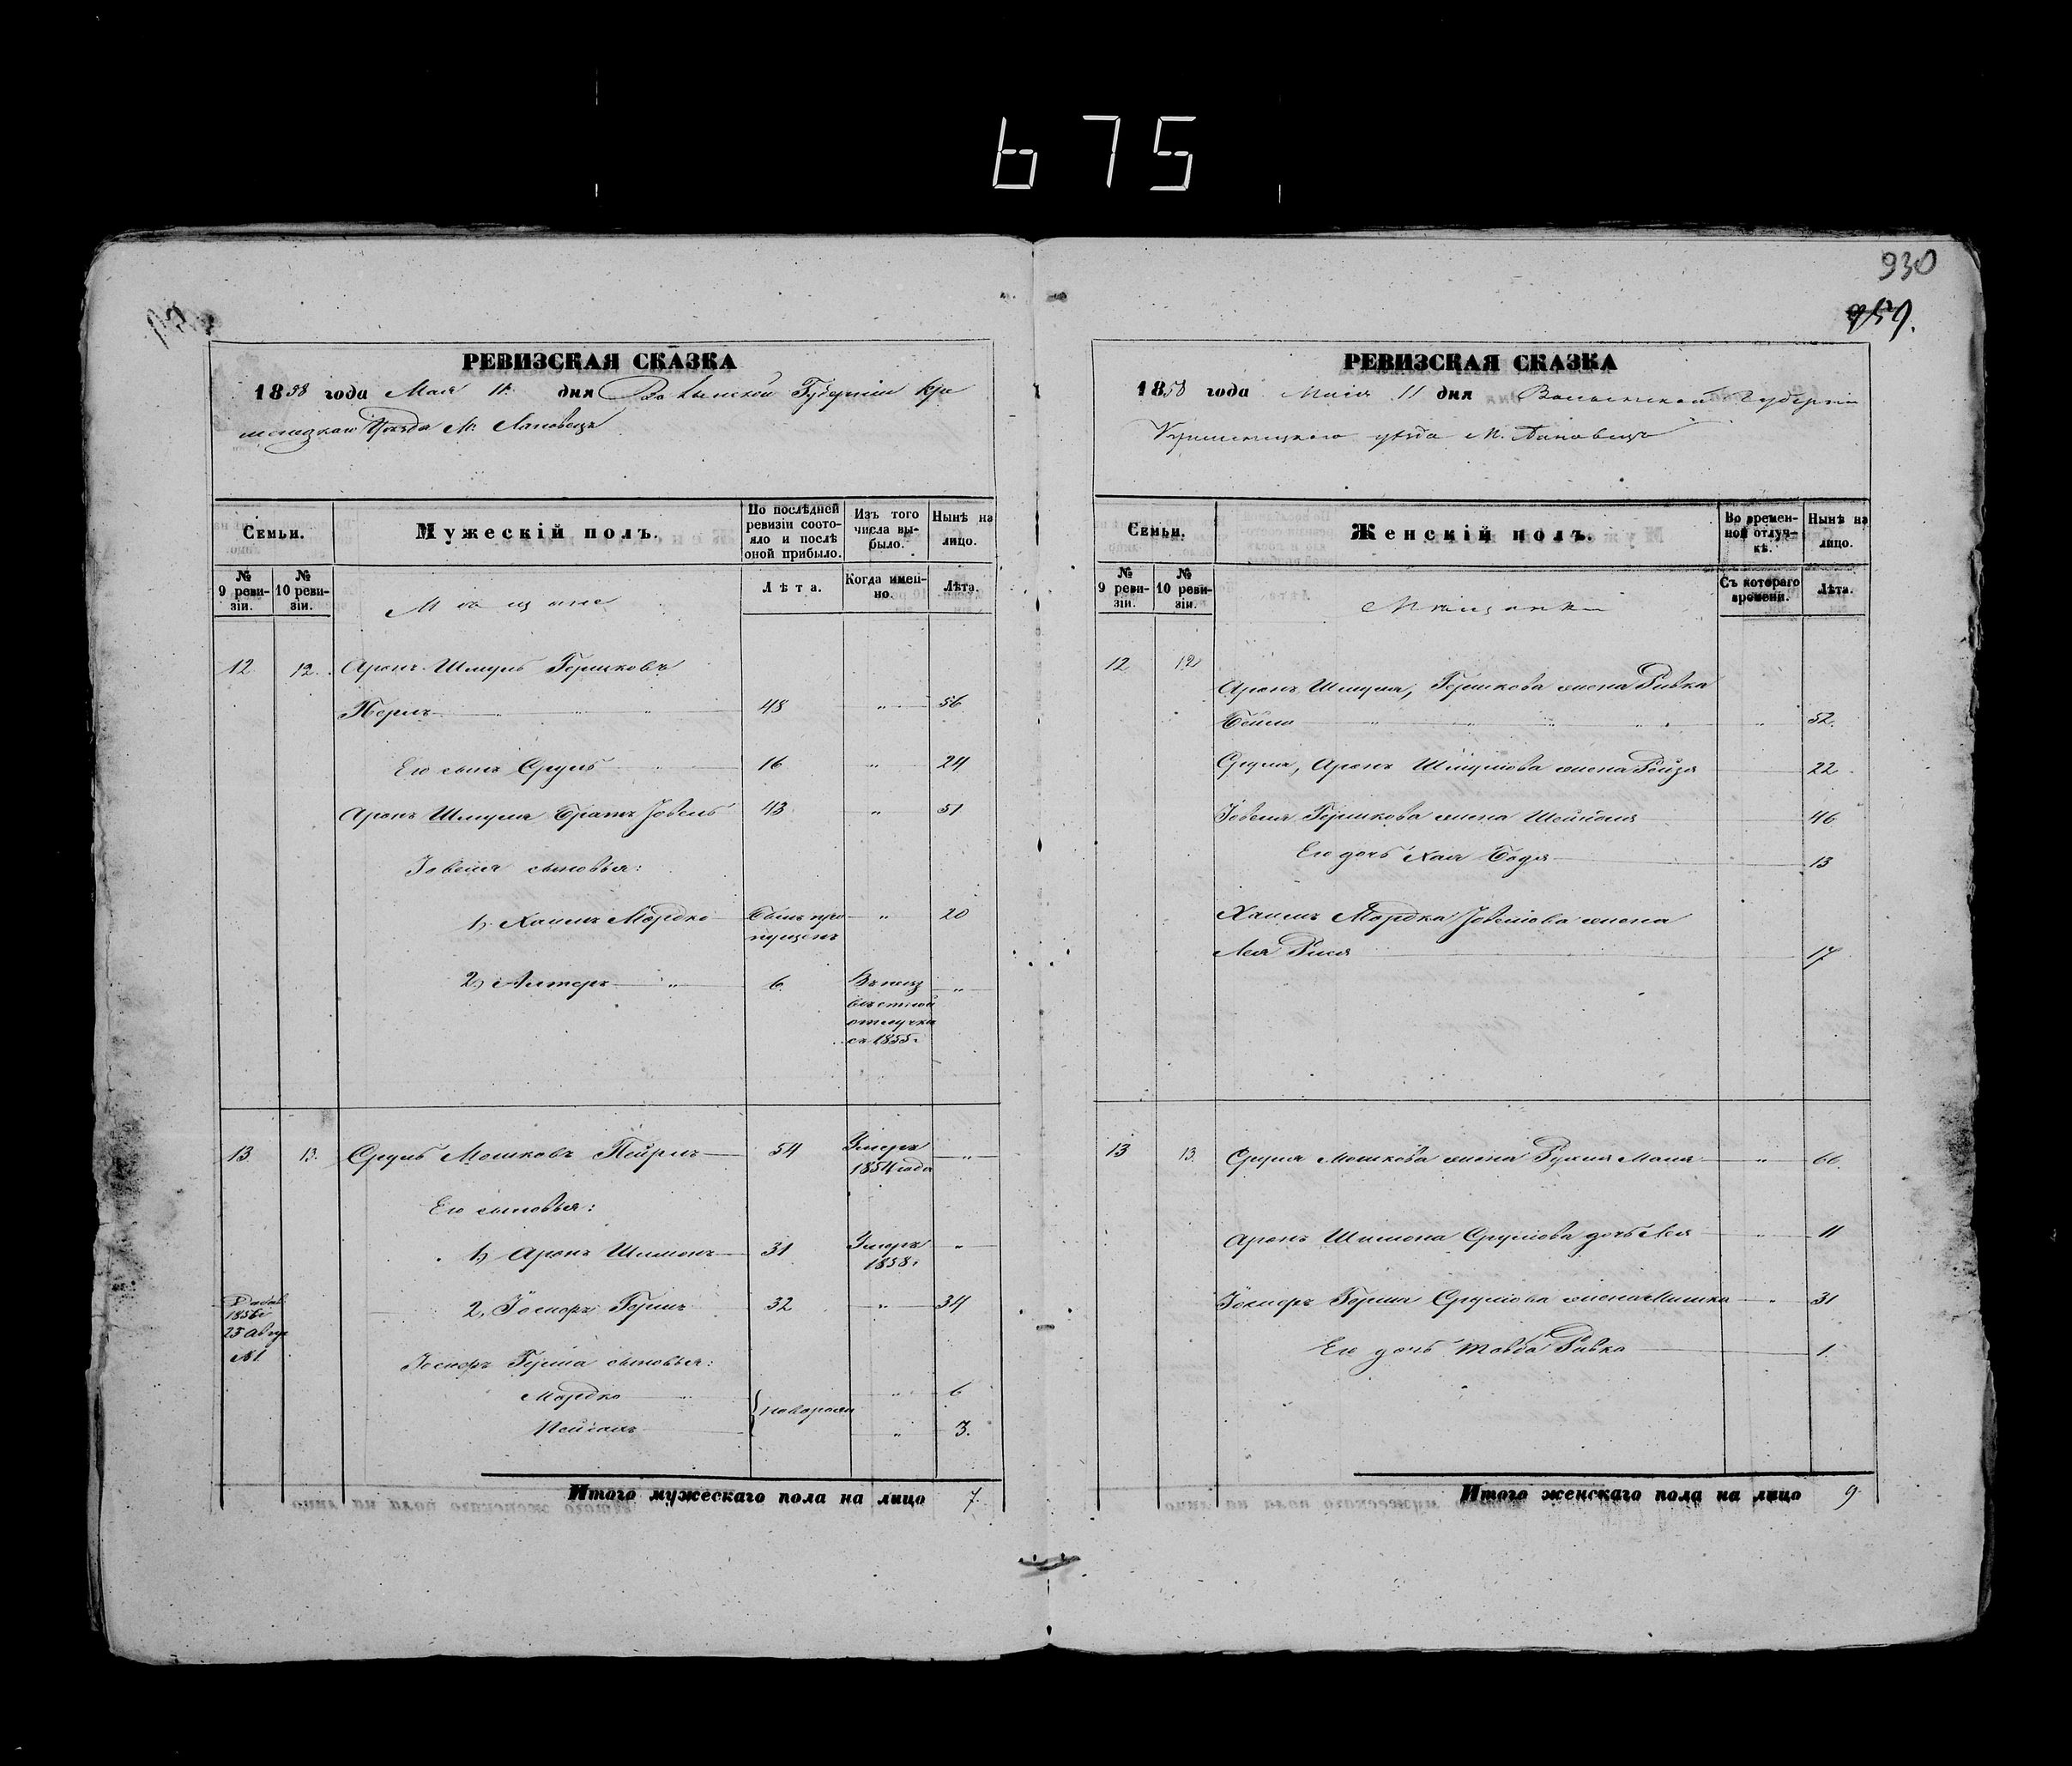 675
930
959.
РЕВИЗСКАЯ СКАЗКА
1858 года Мая 11 дня Волынской Губерніи Кре
менецкаго Уѣзда М. Лановецъ
Семьи.
Мужескій полъ.
По послѣдней ревизіи состояло и послѣ оной прибыло.
Изъ того числа выбыло.
Нынѣ на лицо.
№ 9 ревизіи.
№ 10 ревизіи.
Мѣщане
Лѣта.
Когда именно.
Лѣта.
12 12. Аронъ Шмуль Гершковъ
48 " 56
Его сынъ Сруль 16 " 24
Аронъ Шмуля братъ Іовель 43 " 51
Іовеля сыновья:
1, Хаимъ Мордко Былъ про " 20
пущенъ
2, Алтеръ " 6 Въ неиз "
вѣстной
отлучкѣ
съ 1855 г
13 13. Сруль Мошковъ 54 Умеръ "
1854 года
Его сыновья:
1, Аронъ Шимонъ 31 Умеръ "
1858 г
2, Іосиоръ Герш 32 " 34
1856 г
25 Авгус
№ 1
Герша сыновья:
Мордко " 6
новорож
" 3.
Итого мужескаго пола на лицо 7.
РЕВИЗСКАЯ СКАЗКА
1858 года Маія 11 дня Волынской Губерніи
Кременецкаго уѣзда М. Лановецъ
Семьи.
Женскій полъ.
Во временной отлучкѣ.
Нынѣ на лицо.
№ 9 ревизіи.
№ 10 ревизіи.
Мѣщанки
Съ котораго времени.
Лѣта.
12 12
Аронъ Шмуля, Гершкова жена Ривка
Бейла " 52.
Сруля, Аронъ Шмулiова жена Ройзя 22
Іовеля Гершкова жена Шейндля 46
Его дочь Хая Бодя 13
Хаимъ Мордка Іовелiова жена
Лея Рися 17
13 13. Сруля Мошкова жена Рухля Маля " 66.
Аронъ Шимона Срулiова дочь Лея " 11
Герша Срулiова жена " 31
Его дочь Товба Ривка 1.
Итого женскаго пола на лицо 9